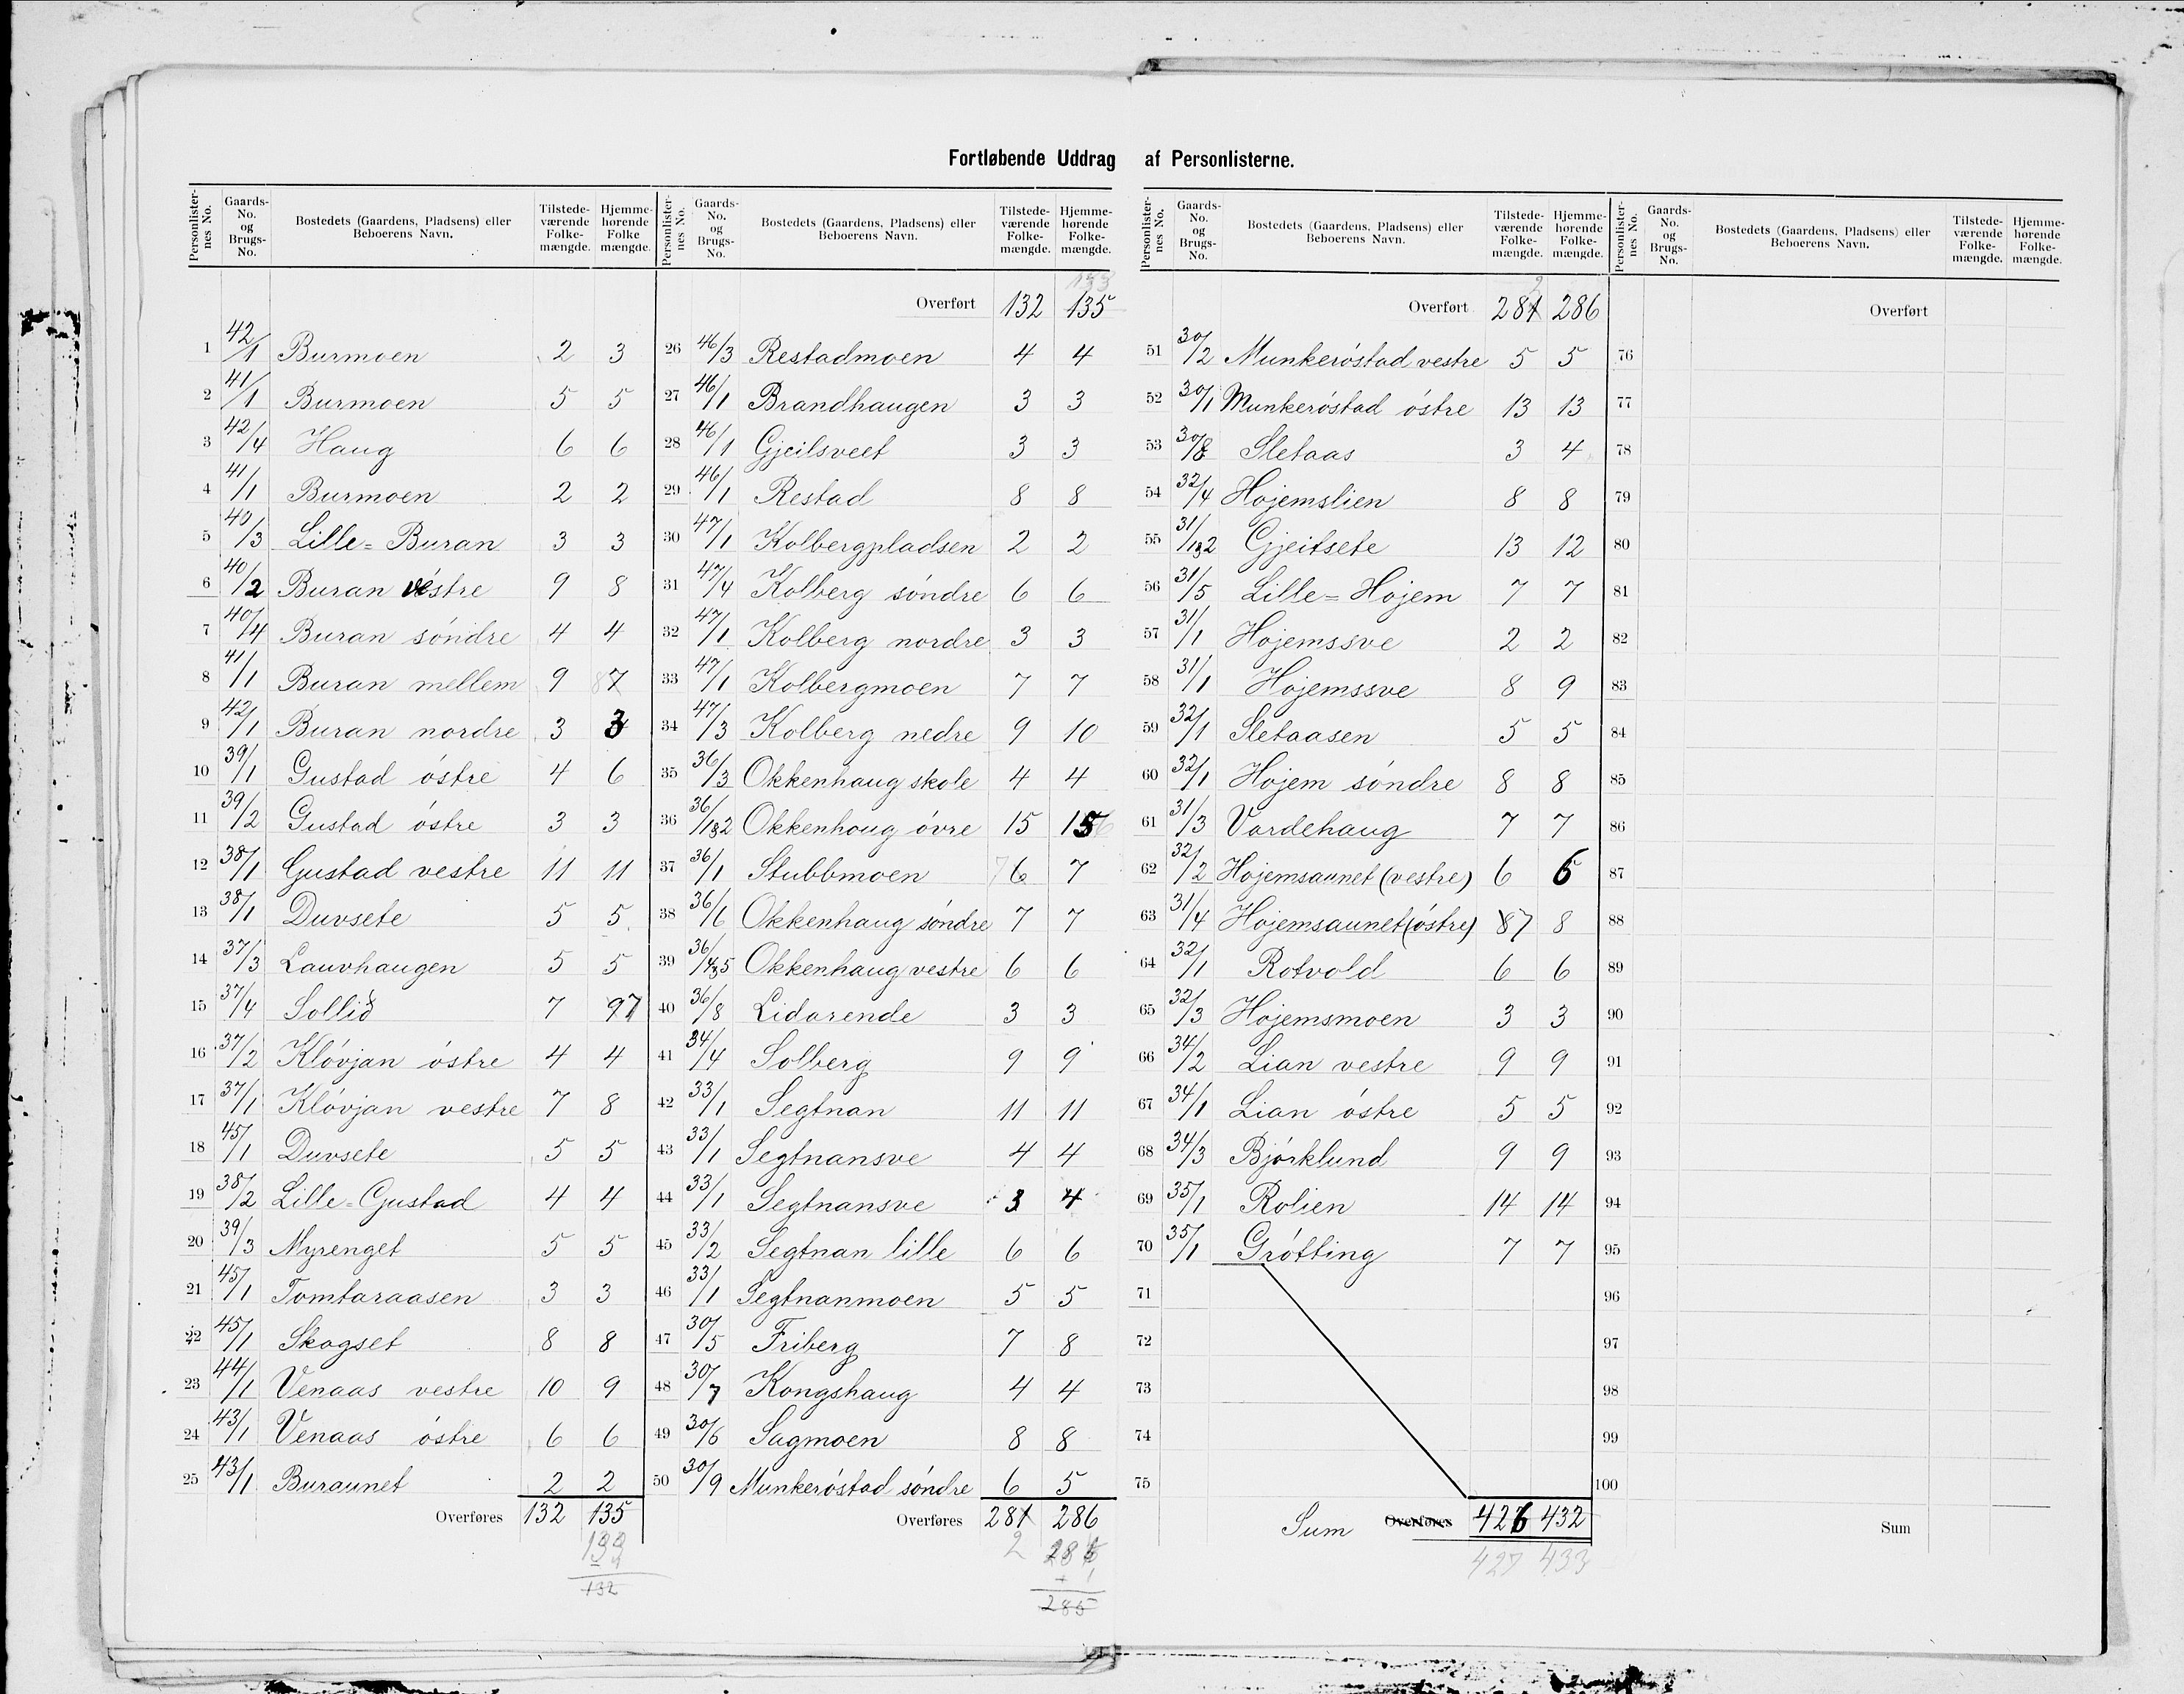 Fortløbende Uddrag af Personlisterne.
Personlisternes No. Gaards-No. og Brugs-No. Bostedets (Gaardens, Pladsens) eller Beboerens Navn. Tilstedeværende Folkemængde. Hjemmehørende Folkemængde.
1 42/1 Burmoen 2 3
2 41/1 Burmoen 5 5
3 42/4 Haug 6 6
4 41/1 Burmoen 2 2
5 40/3 Lille=Buran 3 3
6 40/2 Buran vestre 9 8
7 40/4 Buran söndre 4 4
8 41/1 Buran mellem 9 87
9 42/1 Buran nordre 3 3
10 39/1 Gustad östre 4 6
11 39/2 Gustad östre 3 3
12 38/1 Gustad vestre 11 11
13 38/1 Duvsete 5 5
14 37/3 Lauvhaugen 5 5
15 37/4 Sollid 7 97
16 37/2 Klövjan östre 4 4
17 37/1 Klövjan vestre 7 8
18 45/1 Duvsete 5 5
19 38/2 Lille=Gustad 4 4
20 39/3 Myrenget 5 5
21 45/1 Tomtaraasen 3 3
22 45/1 Skogset 8 8
23 44/1 Venaas vestre 10 9
24 43/1 Venaas östre 6 6
25 43/1 Buraunet 2 2
Overføres 132 135
133
132
Personlisternes No. Gaards-No. og Brugs-No. Bostedets (Gaardens, Pladsens) eller Beboerens Navn. Tilstedeværende Folkemængde. Hjemmehørende Folkemængde.
133
Overført 132 135
26 46/3 Restadmoen 4 4
27 46/1 Brandhaugen 3 3
28 46/1 Gjeilsveet 3 3
29 46/1 Restad 8 8
30 47/1 Kolbergpladsen 2 2
31 47/4 Kolberg söndre 6 6
32 47/1 Kolberg nordre 3 3
33 47/1 Kolbergmoen 7 7
34 47/3 Kolberg nedre 9 10
35 36/3 Okkenhaug skole 4 4
36 36/1&2 Okkenhoug övre 15 156
37 36/1 Stubbmoen 76 7
38 36/6 Okkenhaug söndre 7 7
39 36/4&5 Okkenhaug vestre 6 6
40 36/8 Lidarende 3 3
41 34/4 Solberg 9 9
42 33/1 Segtnan 11 11
43 33/1 Segtnansve 4 4
44 33/1 Segtnansve 3 4
45 33/2 Segtnan lille 6 6
46 33/1 Segtnanmoen 5 5
47 30/5 Friberg 7 8
48 30/7 Kongshaug 4 4
49 30/6 Sagmoen 8 8
50 30/9 Munkeröstad söndre 6 5
Overføres 281 286
2
285
Personlisternes No. Gaards-No. og Brugs-No. Bostedets (Gaardens, Pladsens) eller Beboerens Navn. Tilstedeværende Folkemængde. Hjemmehørende Folkemængde.
2
Overført 281 286
51 30/2 Munkeröstad vestre 5 5
52 30/1 Munkeröstad östre 13 13
53 30/8 Sletaas 3 4
54 32/4 Hojemslien 8 8
55 31/1&2 Gjeitsete 13 12
56 31/5 Lille=Hojem 7 7
57 31/1 Hojemssve 2 2
58 31/1 Hojemssve 8 9
59 32/1 Sletaasen 5 5
60 32/1 Hojem söndre 8 8
61 31/3 Vardehaug 7 7
62 32/2 Hojemsaunet (vestre) 6 6
63 31/4 Hojemsaunet (östre) 87 8
64 32/1 Rotvold 6 6
65 32/3 Hojemsmoen 3 3
66 34/2 Lian vestre 9 9
67 34/1 Lian östre 5 5
68 34/3 Björklund 9 9
69 35/1 Rolien 14 14
70 35/1 Grötting 7 7
71
72
73
74
75
Sum Overføres 426 432
427 433
Personlisternes No. Gaards-No. og Brugs-No. Bostedets (Gaardens, Pladsens) eller Beboerens Navn. Tilstedeværende Folkemængde. Hjemmehørende Folkemængde.
Overført
76
77
78
79
80
81
82
83
84
85
86
87
88
89
90
91
92
93
94
95
96
97
98
99
100
Sum